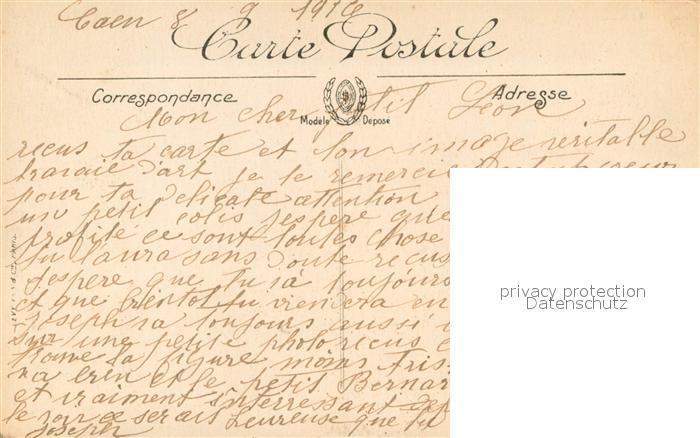 Caen 8 9 1916
Carte Postale
Correspondance
Adresse
Modèle Déposé
Mon cher petit Léon
recus ta carte et ton image veritable
travaie d'art je te remercie
pour ta delicate attention
un petit colis jespere que
profité ce sont toutes chose
tu laura sans doute recus
Jespere que tu va toujours
et que bientot tu viendra en
Joseph va toujours aussi
sur une petite photo recus
trouve la figure moins Tris
et le petit Bernar
et vraiment interressant
le voir ce serait heureuse que tu
Joseph
privacy protection
Datenschutz